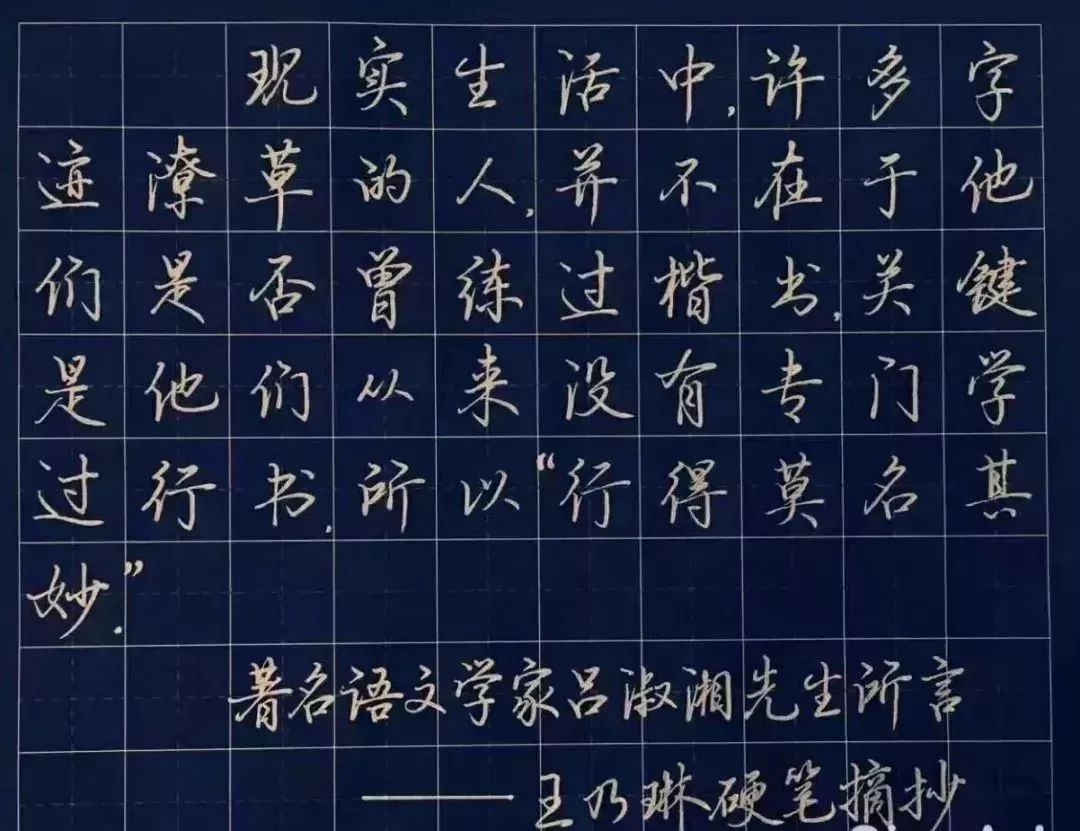 现实生活中,许多字
迹潦草的人,并不在于他
们是否曾练过楷书,关键
是他们从来没有专门学
过行书,所以“行得莫名其
妙.”
著名语文学家吕淑湘先生所言
——王乃琳硬笔摘抄